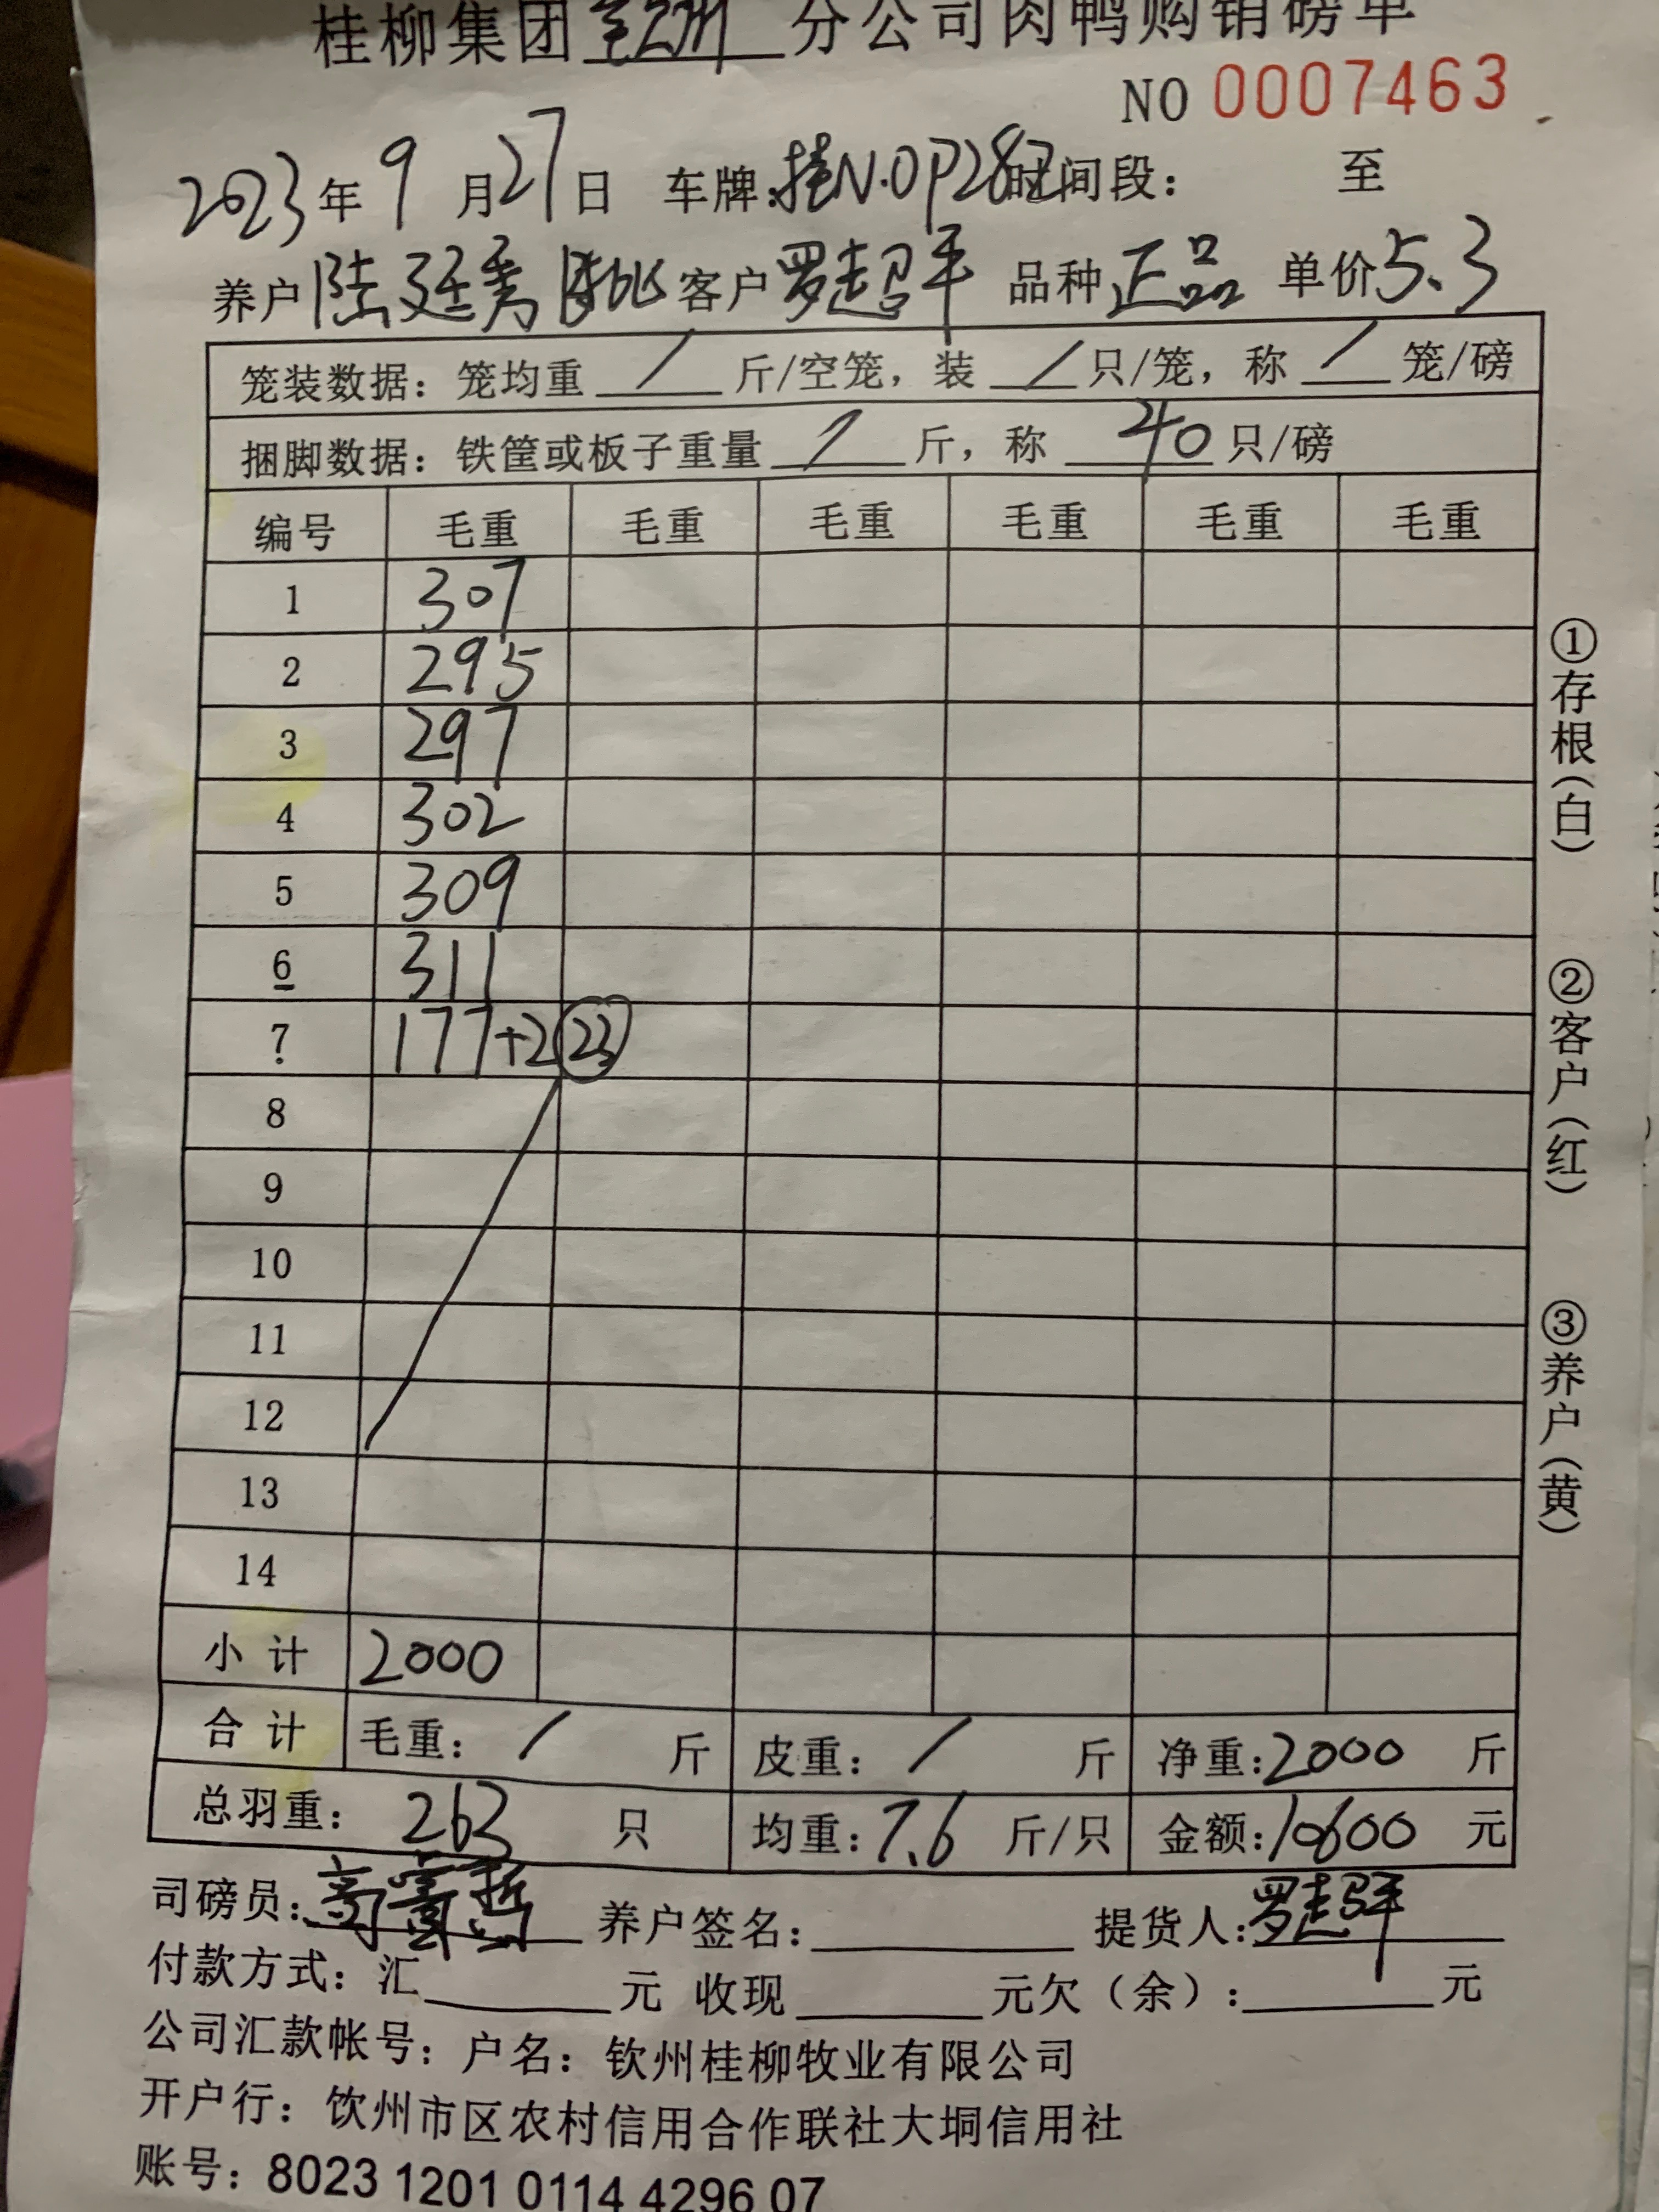 桂柳集团 分公司肉鸭购销磅单
NO 0007463
2023年9月27日 车牌:桂N·0P28 时间段: 至
养户 陆廷秀 客户 罗超平 品种 正品 单价 5.3
笼装数据：笼均重 / 斤/空笼，装 / 只/笼，称 / 笼/磅
捆脚数据：铁筐或板子重量 / 斤，称 40 只/磅
编号 毛重 毛重 毛重 毛重 毛重 毛重
1 307
2 295
3 297
4 302
5 309
6 311
7 177+2 23
8
9
10
11
12
13
14
小计 2000
合计 毛重： / 斤 皮重： / 斤 净重:2000 斤
总羽重： 263 只 均重:7.6 斤/只 金额:10600 元
①存根(白)
②客户(红)
③养户(黄)
司磅员: 养户签名: 提货人:罗超平
付款方式：汇 元 收现 元欠（余）: 元
公司汇款帐号：户名：钦州桂柳牧业有限公司
开户行：钦州市区农村信用合作联社大垌信用社
账号：8023 1201 0114 4296 07